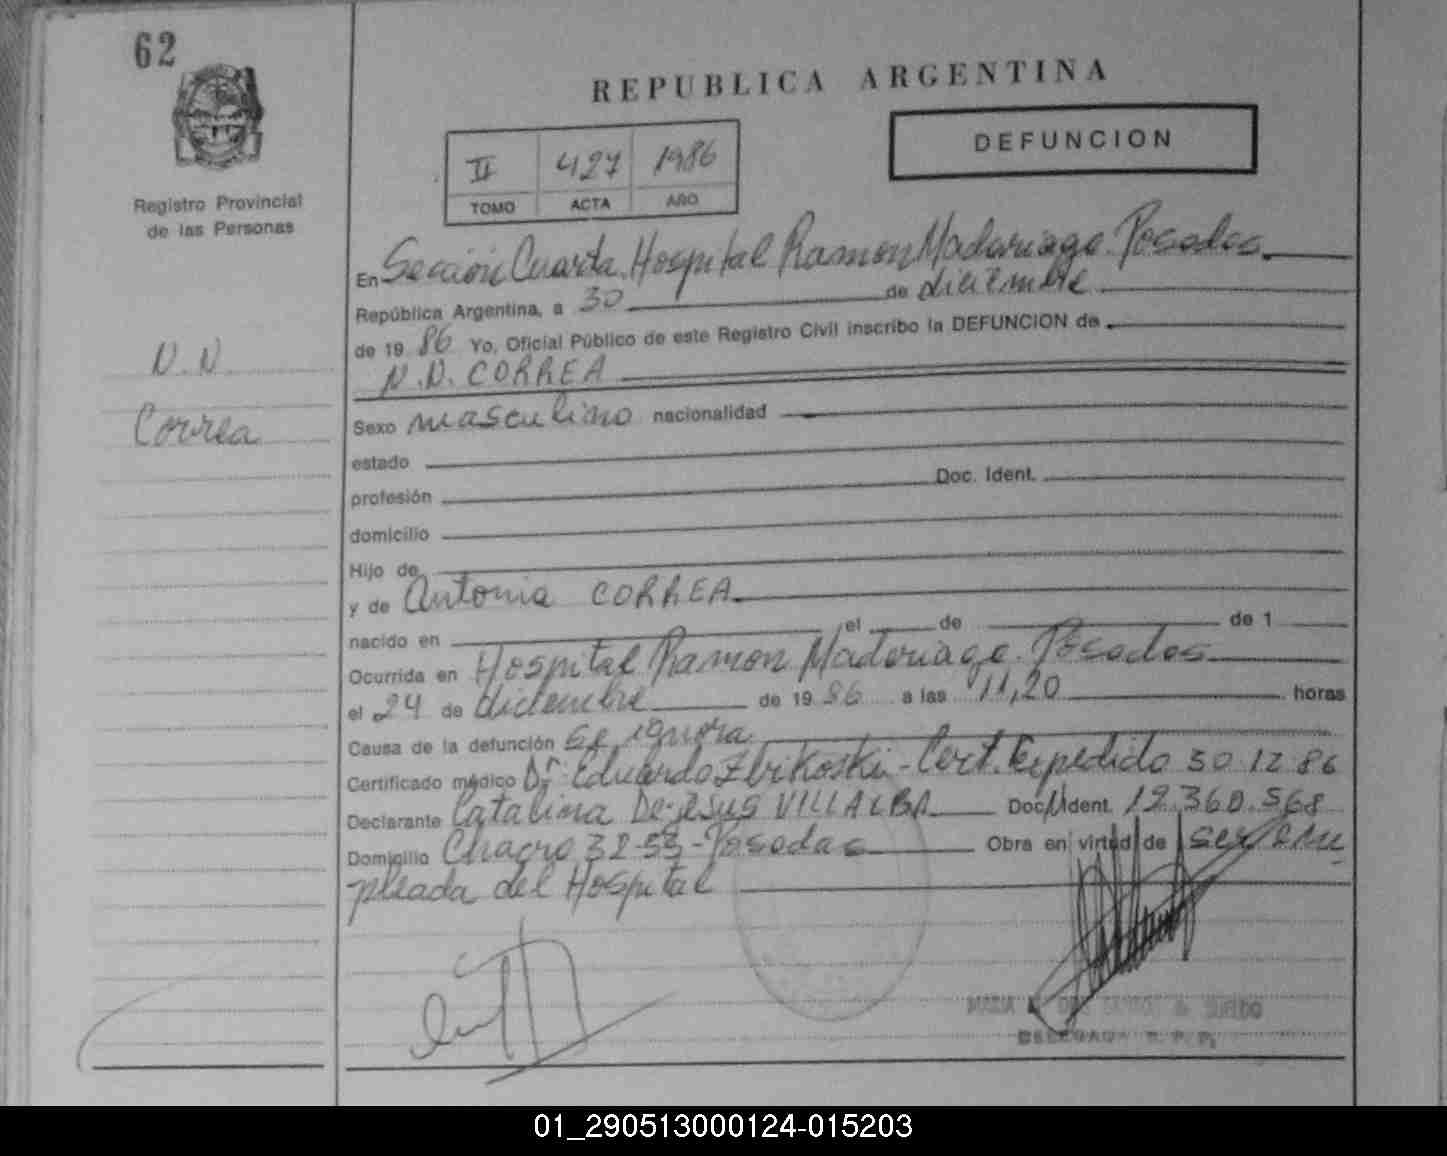 62
REPUBLICA ARGENTINA
DEFUNCION
II 427 1986
TOMO ACTA AÑO
Registro Provincial
de las Personas
En Sección Cuarta. Hospital Ramon Madariaga. Posadas.
República Argentina, a 30 de diciembre
de 1986 Yo, Oficial Público de este Registro Civil inscribo la DEFUNCION de
N.N. CORREA
N.N.
Correa
Sexo masculino nacionalidad
estado
profesión Doc. Ident.
domicilio
Hijo de
y de Antonia CORREA
nacido en el de de 1
Ocurrida en Hospital Ramon Madariaga. Posadas
el 24 de diciembre de 1986 a las 11,20 horas
Causa de la defunción se ignora
Certificado médico Dr. Eduardo Zbikoski - Cert. Expedido 30 12 86
Declarante Catalina De Jesus VILLALBA Doc. Ident. 12.360.568
Domicilio Chacra 32-53 - Posadas Obra en virtud de ser em
pleada del Hospital
MARIA DE
DELEGADA R. P. P.
01_290513000124-015203